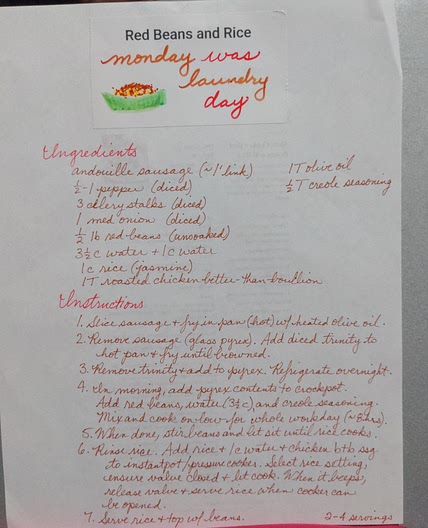 Red Beans and Rice
monday was
laundry
day
Ingredients
andouille sausage (~1' link)
1T olive oil
½-1 pepper (diced)
½T creole seasoning
3 celery stalks (diced)
1 med onion (diced)
½ lb red beans (unsoaked)
3½c water + 1c water
1c rice (jasmine)
1T roasted chicken better-than-boullion
Instructions
1. Slice sausage + fry in pan (hot) w/ heated olive oil.
2. Remove sausage (glass pyrex). Add diced trinity to
hot pan + fry until browned.
3. Remove trinity + add to pyrex. Refrigerate overnight.
4. In morning, add pyrex contents to crockpot.
Add red beans, water (3½c) and creole seasoning.
Mix and cook on low for whole workday (~8 hrs).
5. When done, stir beans and let sit until rice cooks.
6. Rinse rice. Add rice + 1c water + chicken btb ssg
to instantpot/pressure cooker. Select rice setting,
ensure valve closed + let cook. When it beeps,
release valve + serve rice when cooker can
be opened.
7. Serve rice + top w/ beans.
2-4 servings